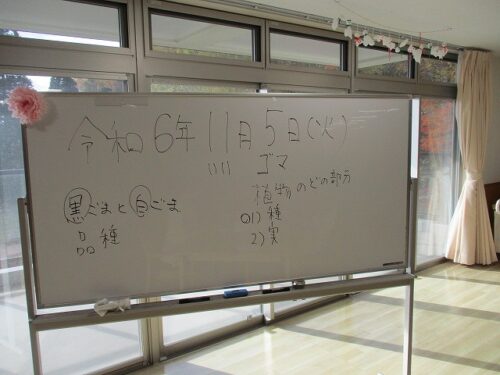 令和6年11月5日(火)
いいゴマ
黒ごまと白ごま
品種
植物のどの部分
○1)種
2)実